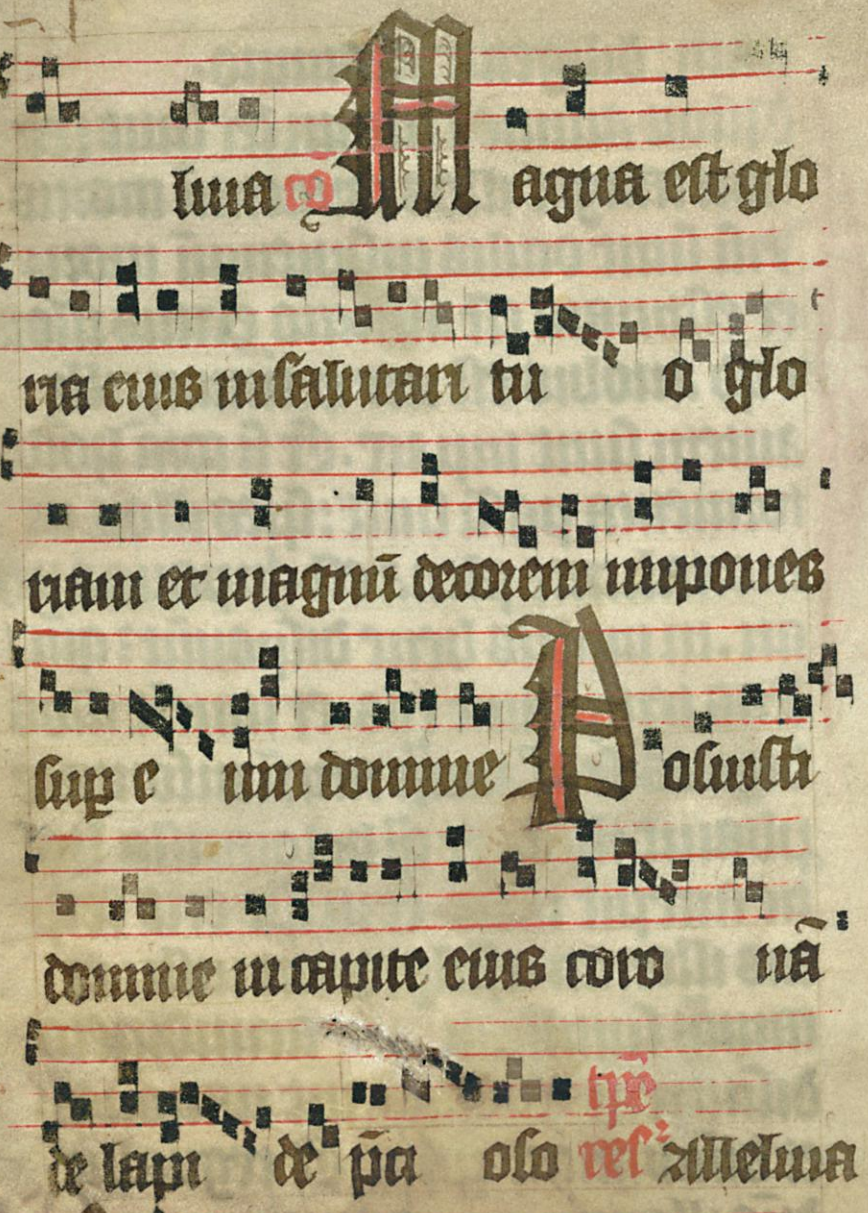 luia Magna est glo
ria eius in salutari tu o glo
riam et magnū decorem impones
sup e um domine Posuisti
domine in capite eius coro nā
de lapi de p̄ci oso tp̄e res Alleluia